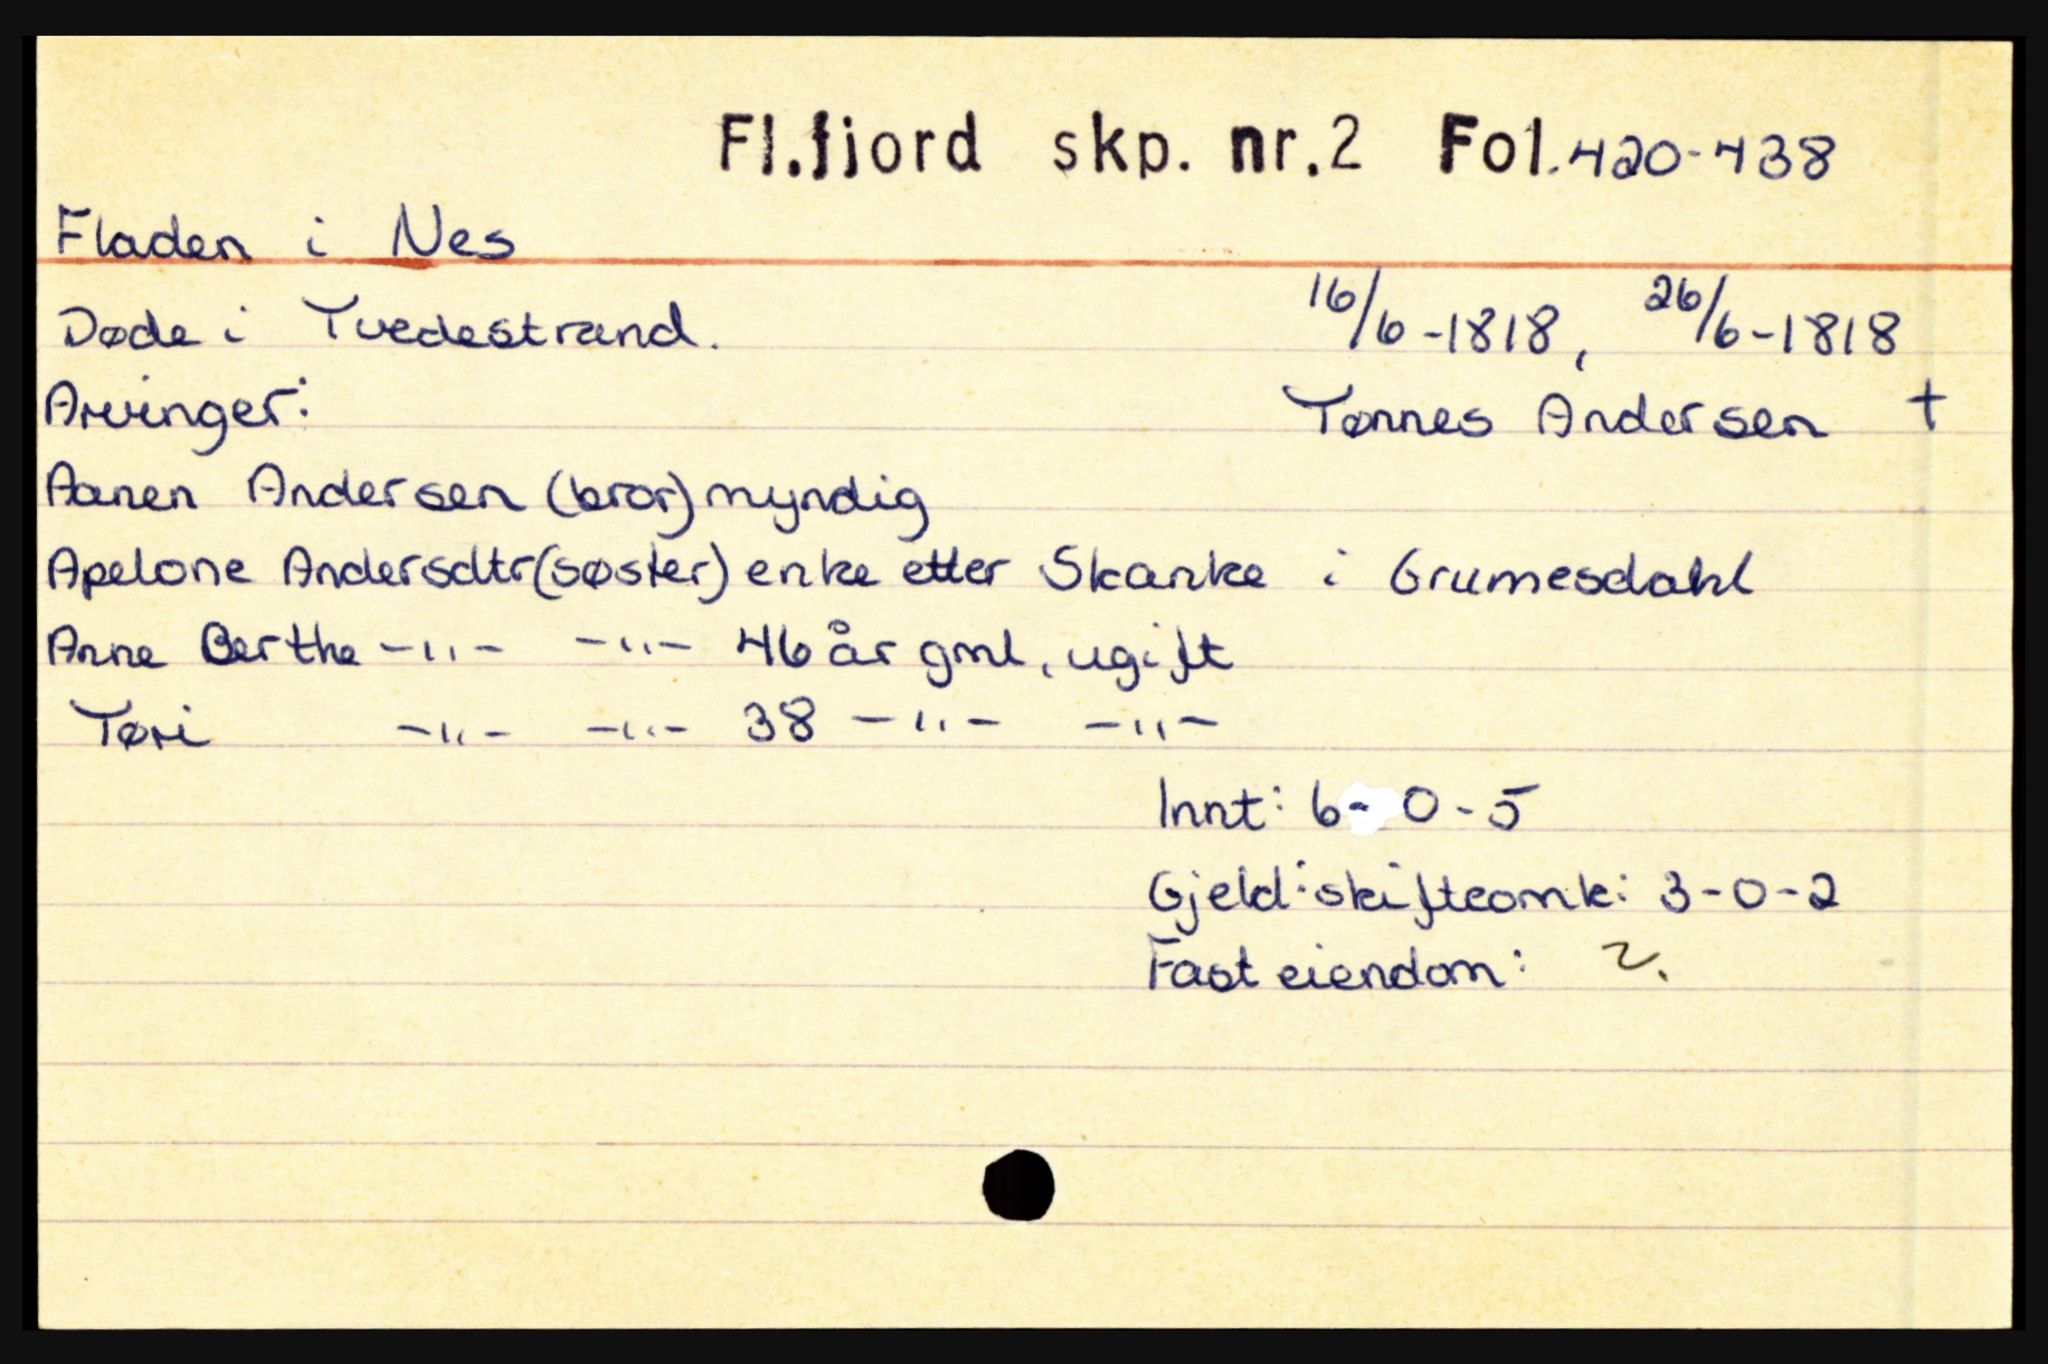 Fl.fjord skp. nr.2 Fol. 420-438
Fladen i Nes
Døde i Tvedestrand. 16/6-1818, 26/6-1818
Arvinger: Tønnes Andersen †
Aanen Andersen (bror) myndig
Apelone Andersdtr (søster) enke etter Skanke i Grumesdahl
Anne Berthe -"- -"- 46 år gml, ugift
Tøri -"- -"- 38 -"- -"-
Innt: 6-0-5
Gjeld: skifteomk: 3-0-2
Fast eiendom: